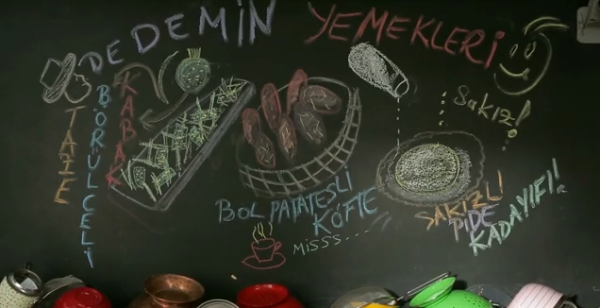 DEDEMİN YEMEKLERİ
TAZE
BÖRÜLCELİ
KABAK
BOL PATATESLİ
KÖFTE
MİSSS...
Sakız!
SAKIZLI
PİDE
KADAYIFI!